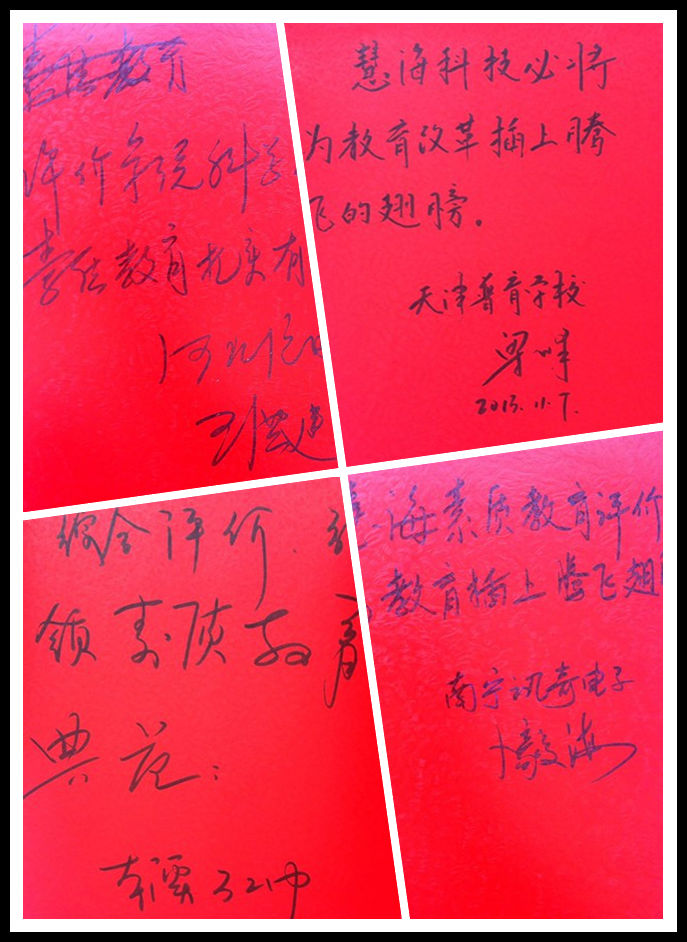 素质教育
评价系统科学
素质教育扎实有
慧海科技必将
为教育改革插上腾
飞的翅膀。
天津普育学校
梁峰
2013.11.7.
综合评价
领素质教育
典范:
海素质教育评价
教育插上腾飞翅
南宁讯奇电子
卜毅海